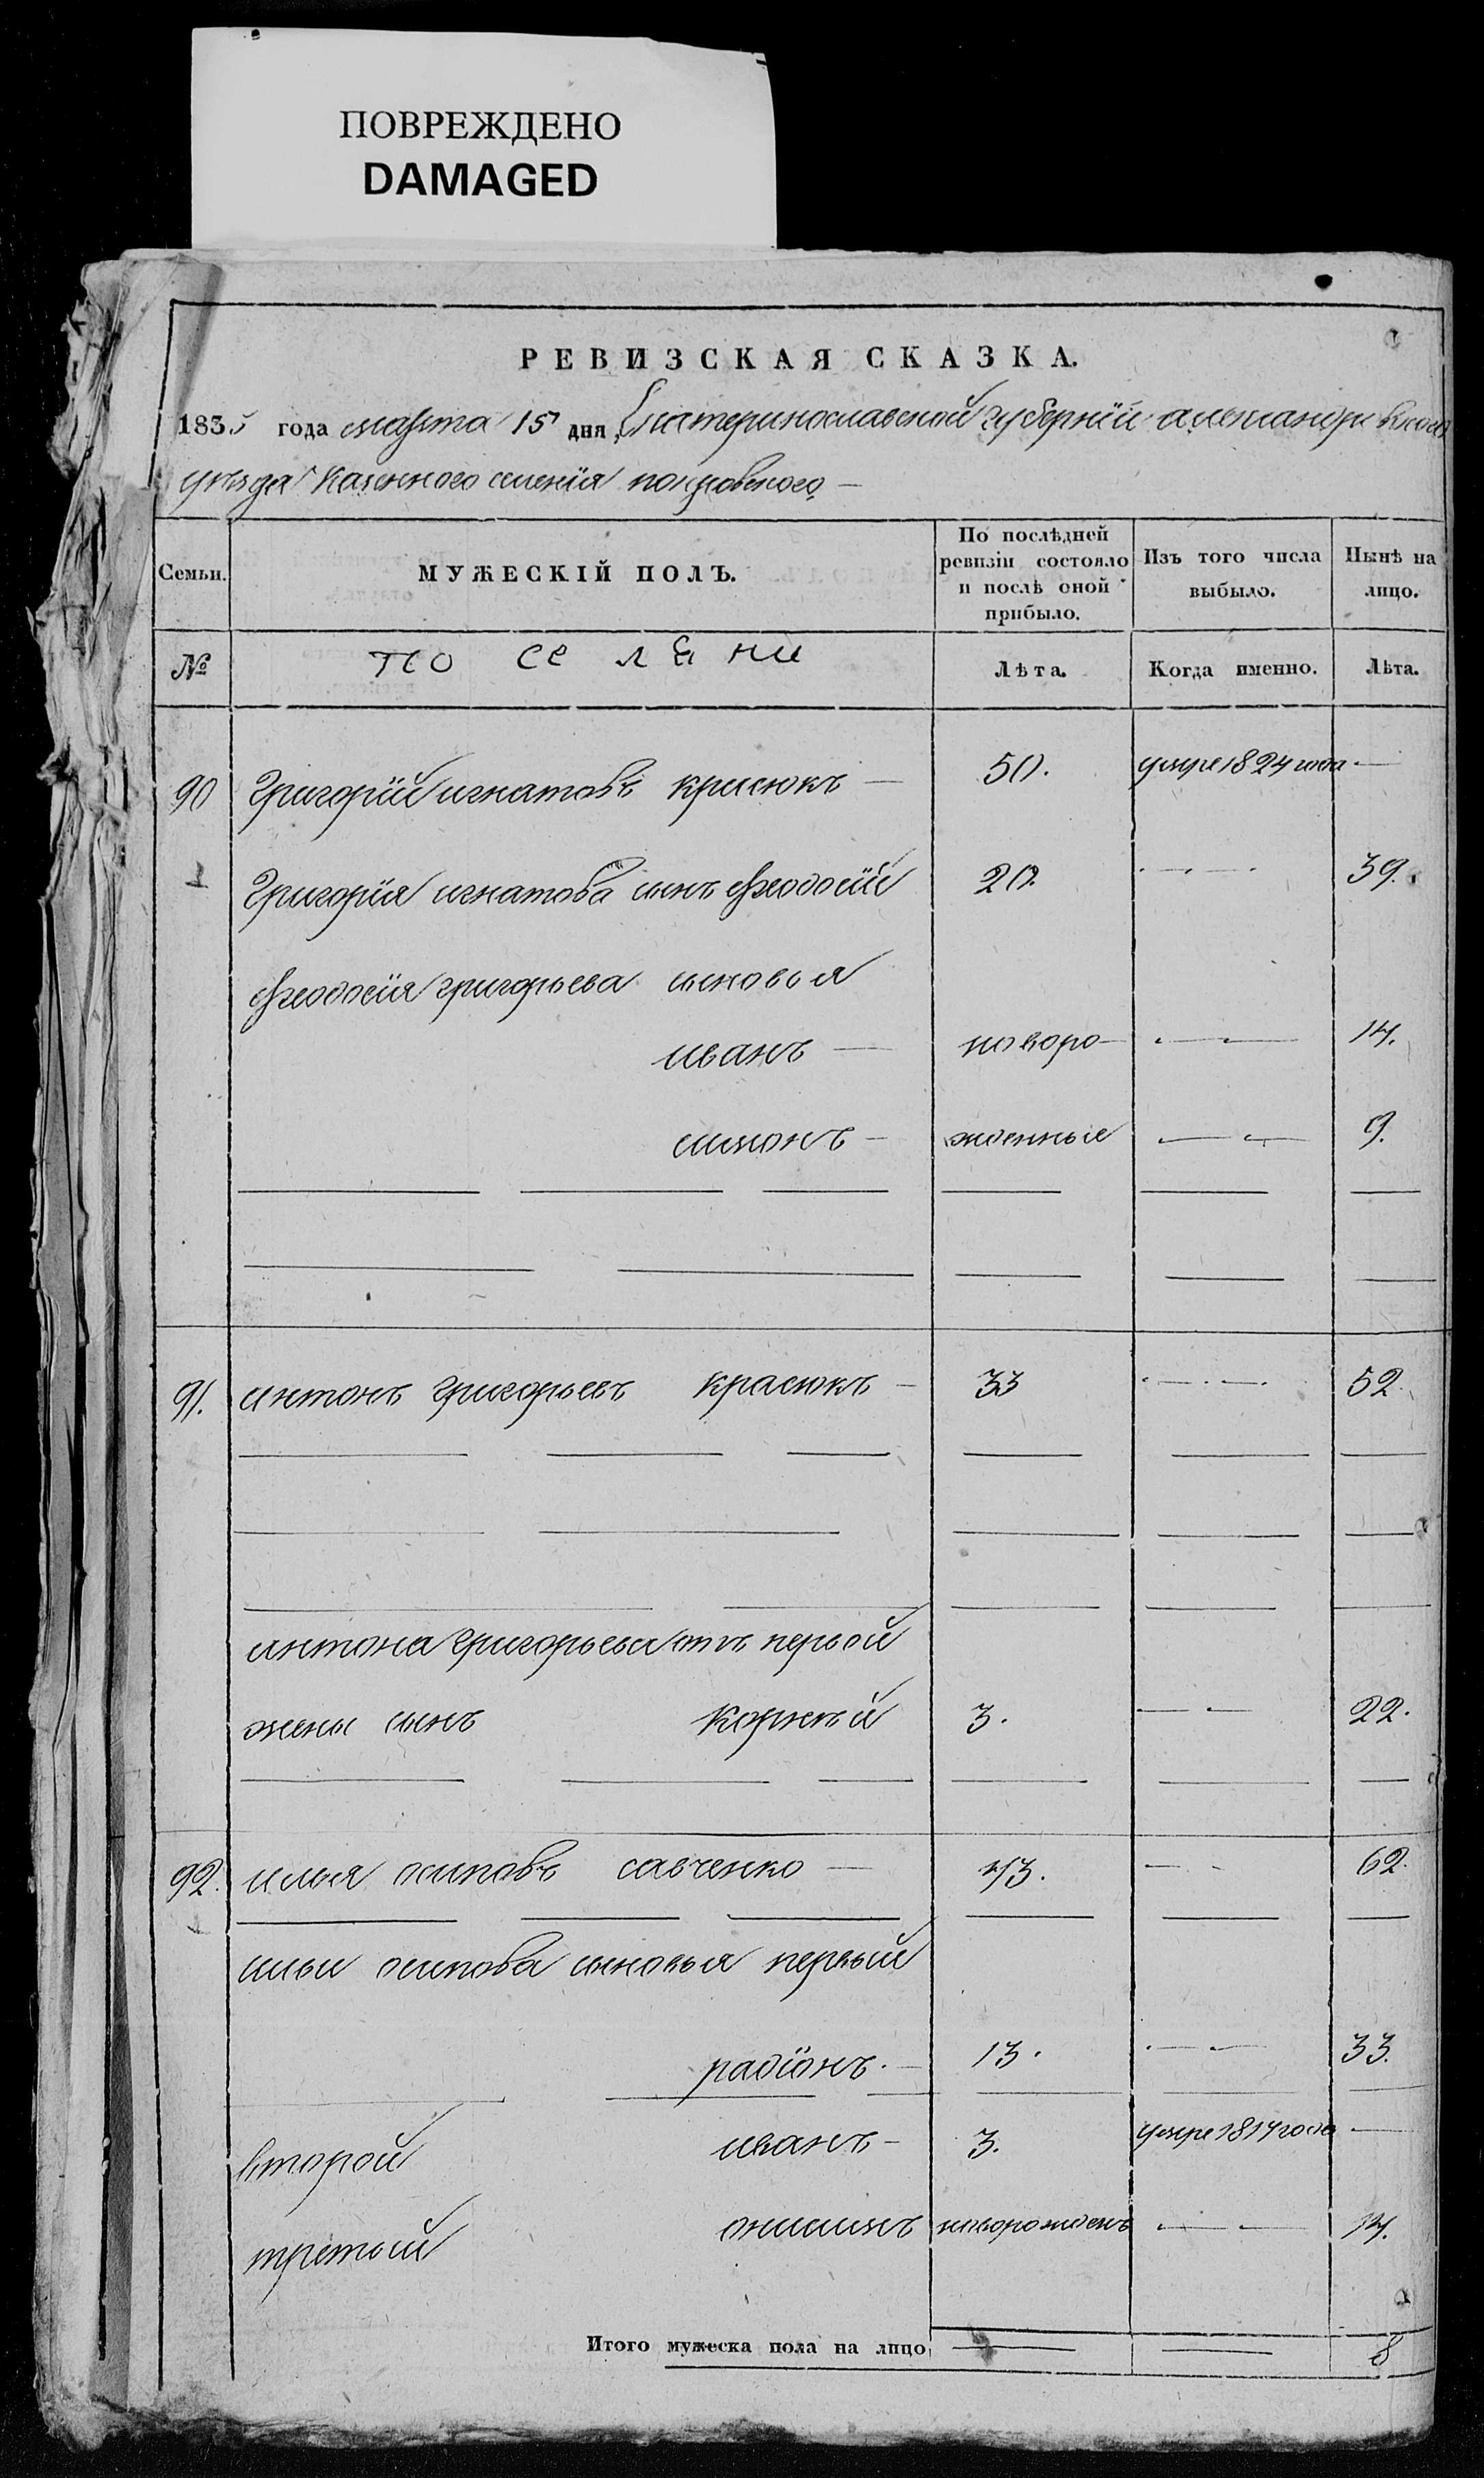 ПОВРЕЖДЕНО
DAMAGED
РЕВИЗСКАЯ СКАЗКА.
1835 года марта 15 дня, Екатеринославской губернїи александровского
уезда казенного селенїя покровского
Семьи. МУЖЕСКІЙ ПОЛЪ. По послѣдней ревизіи состояло и послѣ оной прибыло. Изъ того числа выбыло. Нынѣ на лицо.
№ поселяни Лѣта. Когда именно. Лѣта.
90 Григорїй игнатовъ красюкъ 50. умре 1824 года
Григорїя игнатова сынъ Ѳеодосїй 20. 39.
Ѳеодосїя григорьева сыновья
иванъ новоро 14.
симонъ жденные 9.
91. антонъ григорьевъ красюкъ 33 52.
антона григорьева отъ первой
жены сынъ корнѣй 3. 22.
92. илья осиповъ савченко 43. 62.
ильи осипова сыновья первый
радїонъ. 13. 33.
второй иванъ 3. умре 1817 года
третый онисимъ новорожденъ 14.
Итого мужеска пола на лицо 8